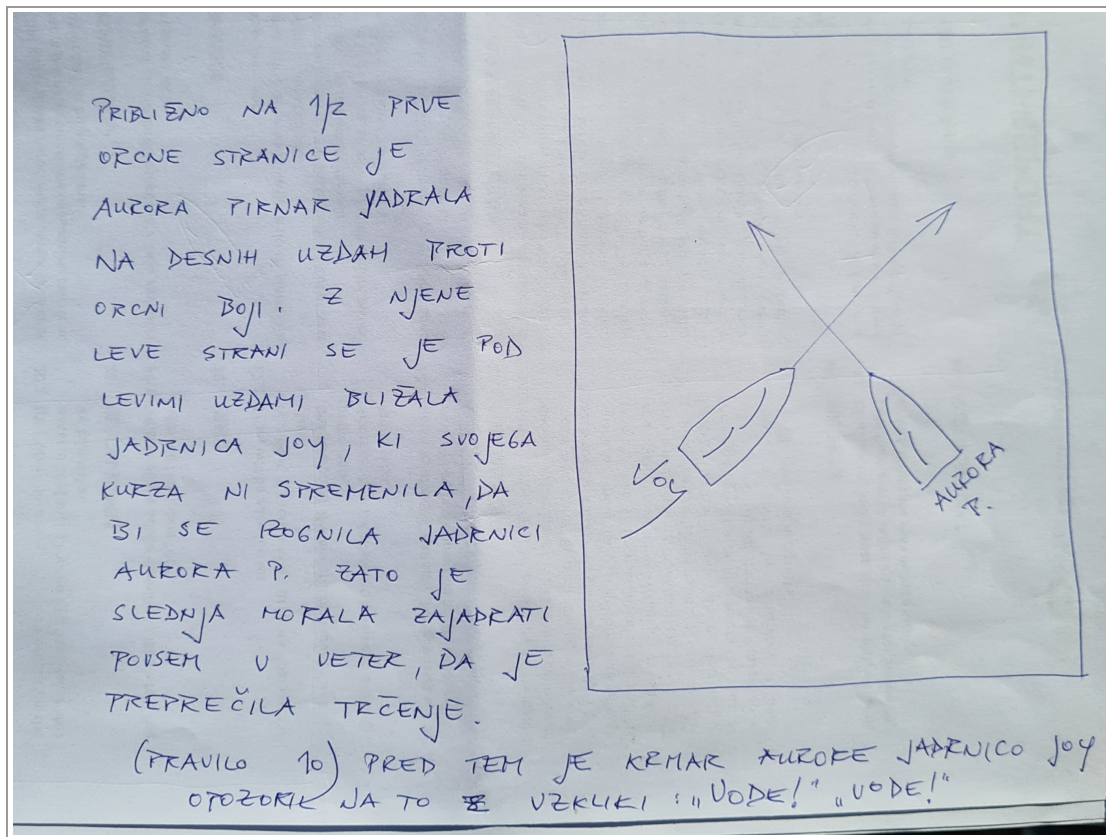 PRIBLIŽNO NA 1/2 PRVE
ORCNE STRANICE JE
AURORA PIRNAR JADRALA
NA DESNIH UZDAH PROTI
ORCNI BOJI. Z NJENE
LEVE STRANI SE JE POD
LEVIMI UZDAMI BLIŽALA
JADRNICA JOY, KI SVOJEGA
KURZA NI SPREMENILA, DA
BI SE ROGNILA JADRNICI
AURORA P. ZATO JE
SLEDNJA MORALA ZAJADRATI
POVSEM V VETER, DA JE
PREPREČILA TRČENJE.
(PRAVILO 10) PRED TEM JE KRMAR AURORE JADRNICO JOY
OPOZORIL NA TO Z VZKLIKI: "VODE!" "VODE!"
JOY
AURORA
P.